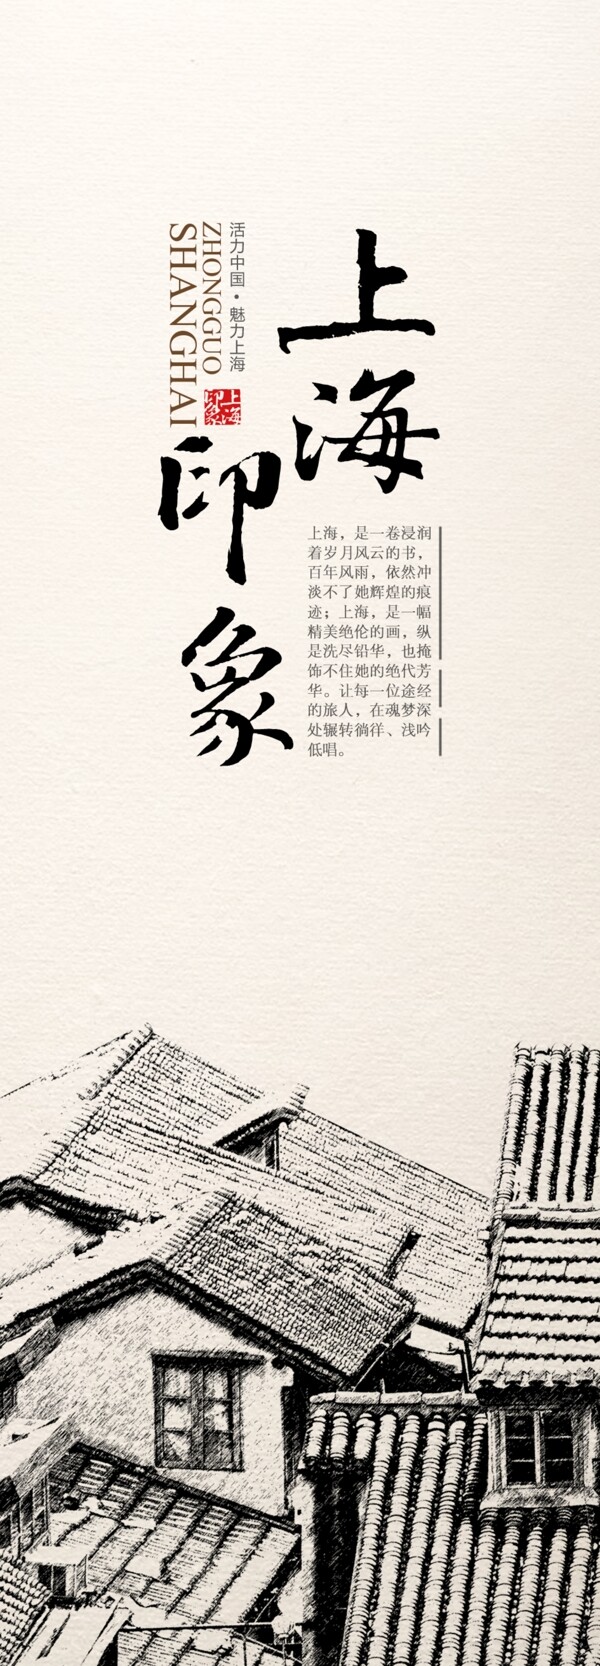 上海
印象
活力中国·魅力上海
ZHONGGUO
SHANGHAI
上海
印象
上海，是一卷浸润
着岁月风云的书，
百年风雨，依然冲
淡不了她辉煌的痕
迹；上海，是一幅
精美绝伦的画，纵
是洗尽铅华，也掩
饰不住她的绝代芳
华。让每一位途经
的旅人，在魂梦深
处辗转徜徉、浅吟
低唱。